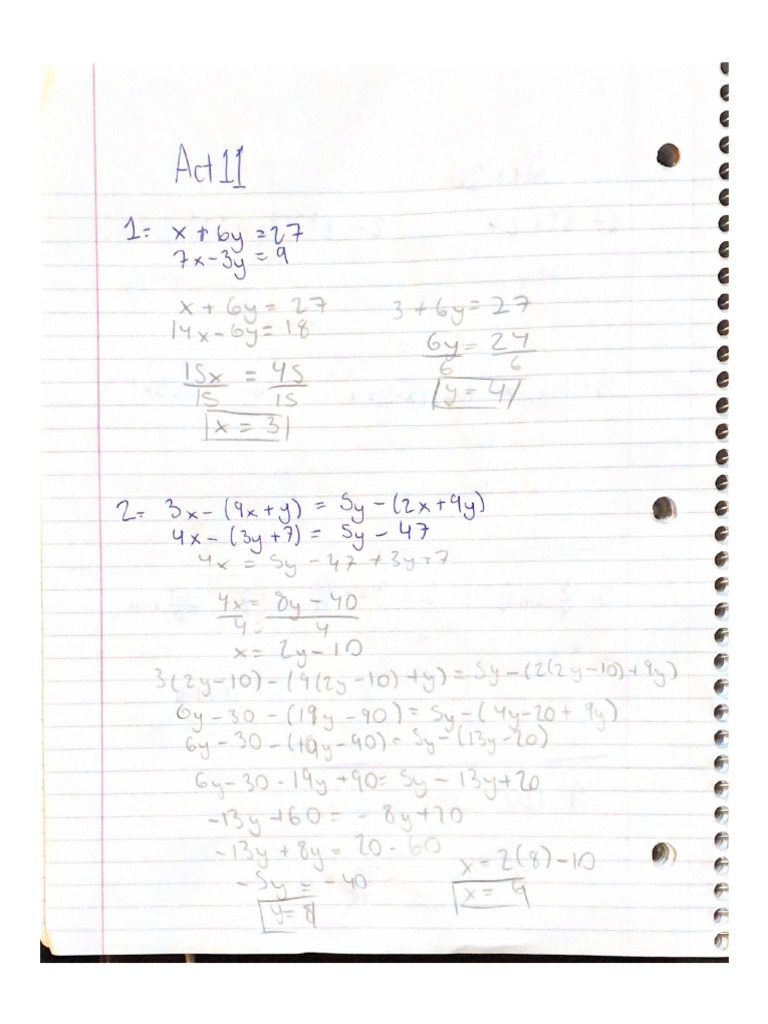 Act 11
1= x + 6y = 27
7x - 3y = 9
x + 6y = 27
14x - 6y = 18
15x = 45
15 15
x = 3
3 + 6y = 27
6y = 24
6 6
y = 4
2= 3x - (9x + y) = 5y - (2x + 9y)
4x - (3y + 7) = 5y - 47
4x = 5y - 47 + 3y + 7
4x = 8y - 40
4 4
x = 2y - 10
3(2y - 10) - (9(2y - 10) + y) = 5y - (2(2y - 10) + 9y)
6y - 30 - (19y - 90) = 5y - (4y - 20 + 9y)
6y - 30 - (19y - 90) = 5y - (13y - 20)
6y - 30 - 19y + 90 = 5y - 13y + 20
-13y + 60 = - 8y + 20
-13y + 8y = 20 - 60
-5y = -40
y = 8
x = 2(8) - 10
x =